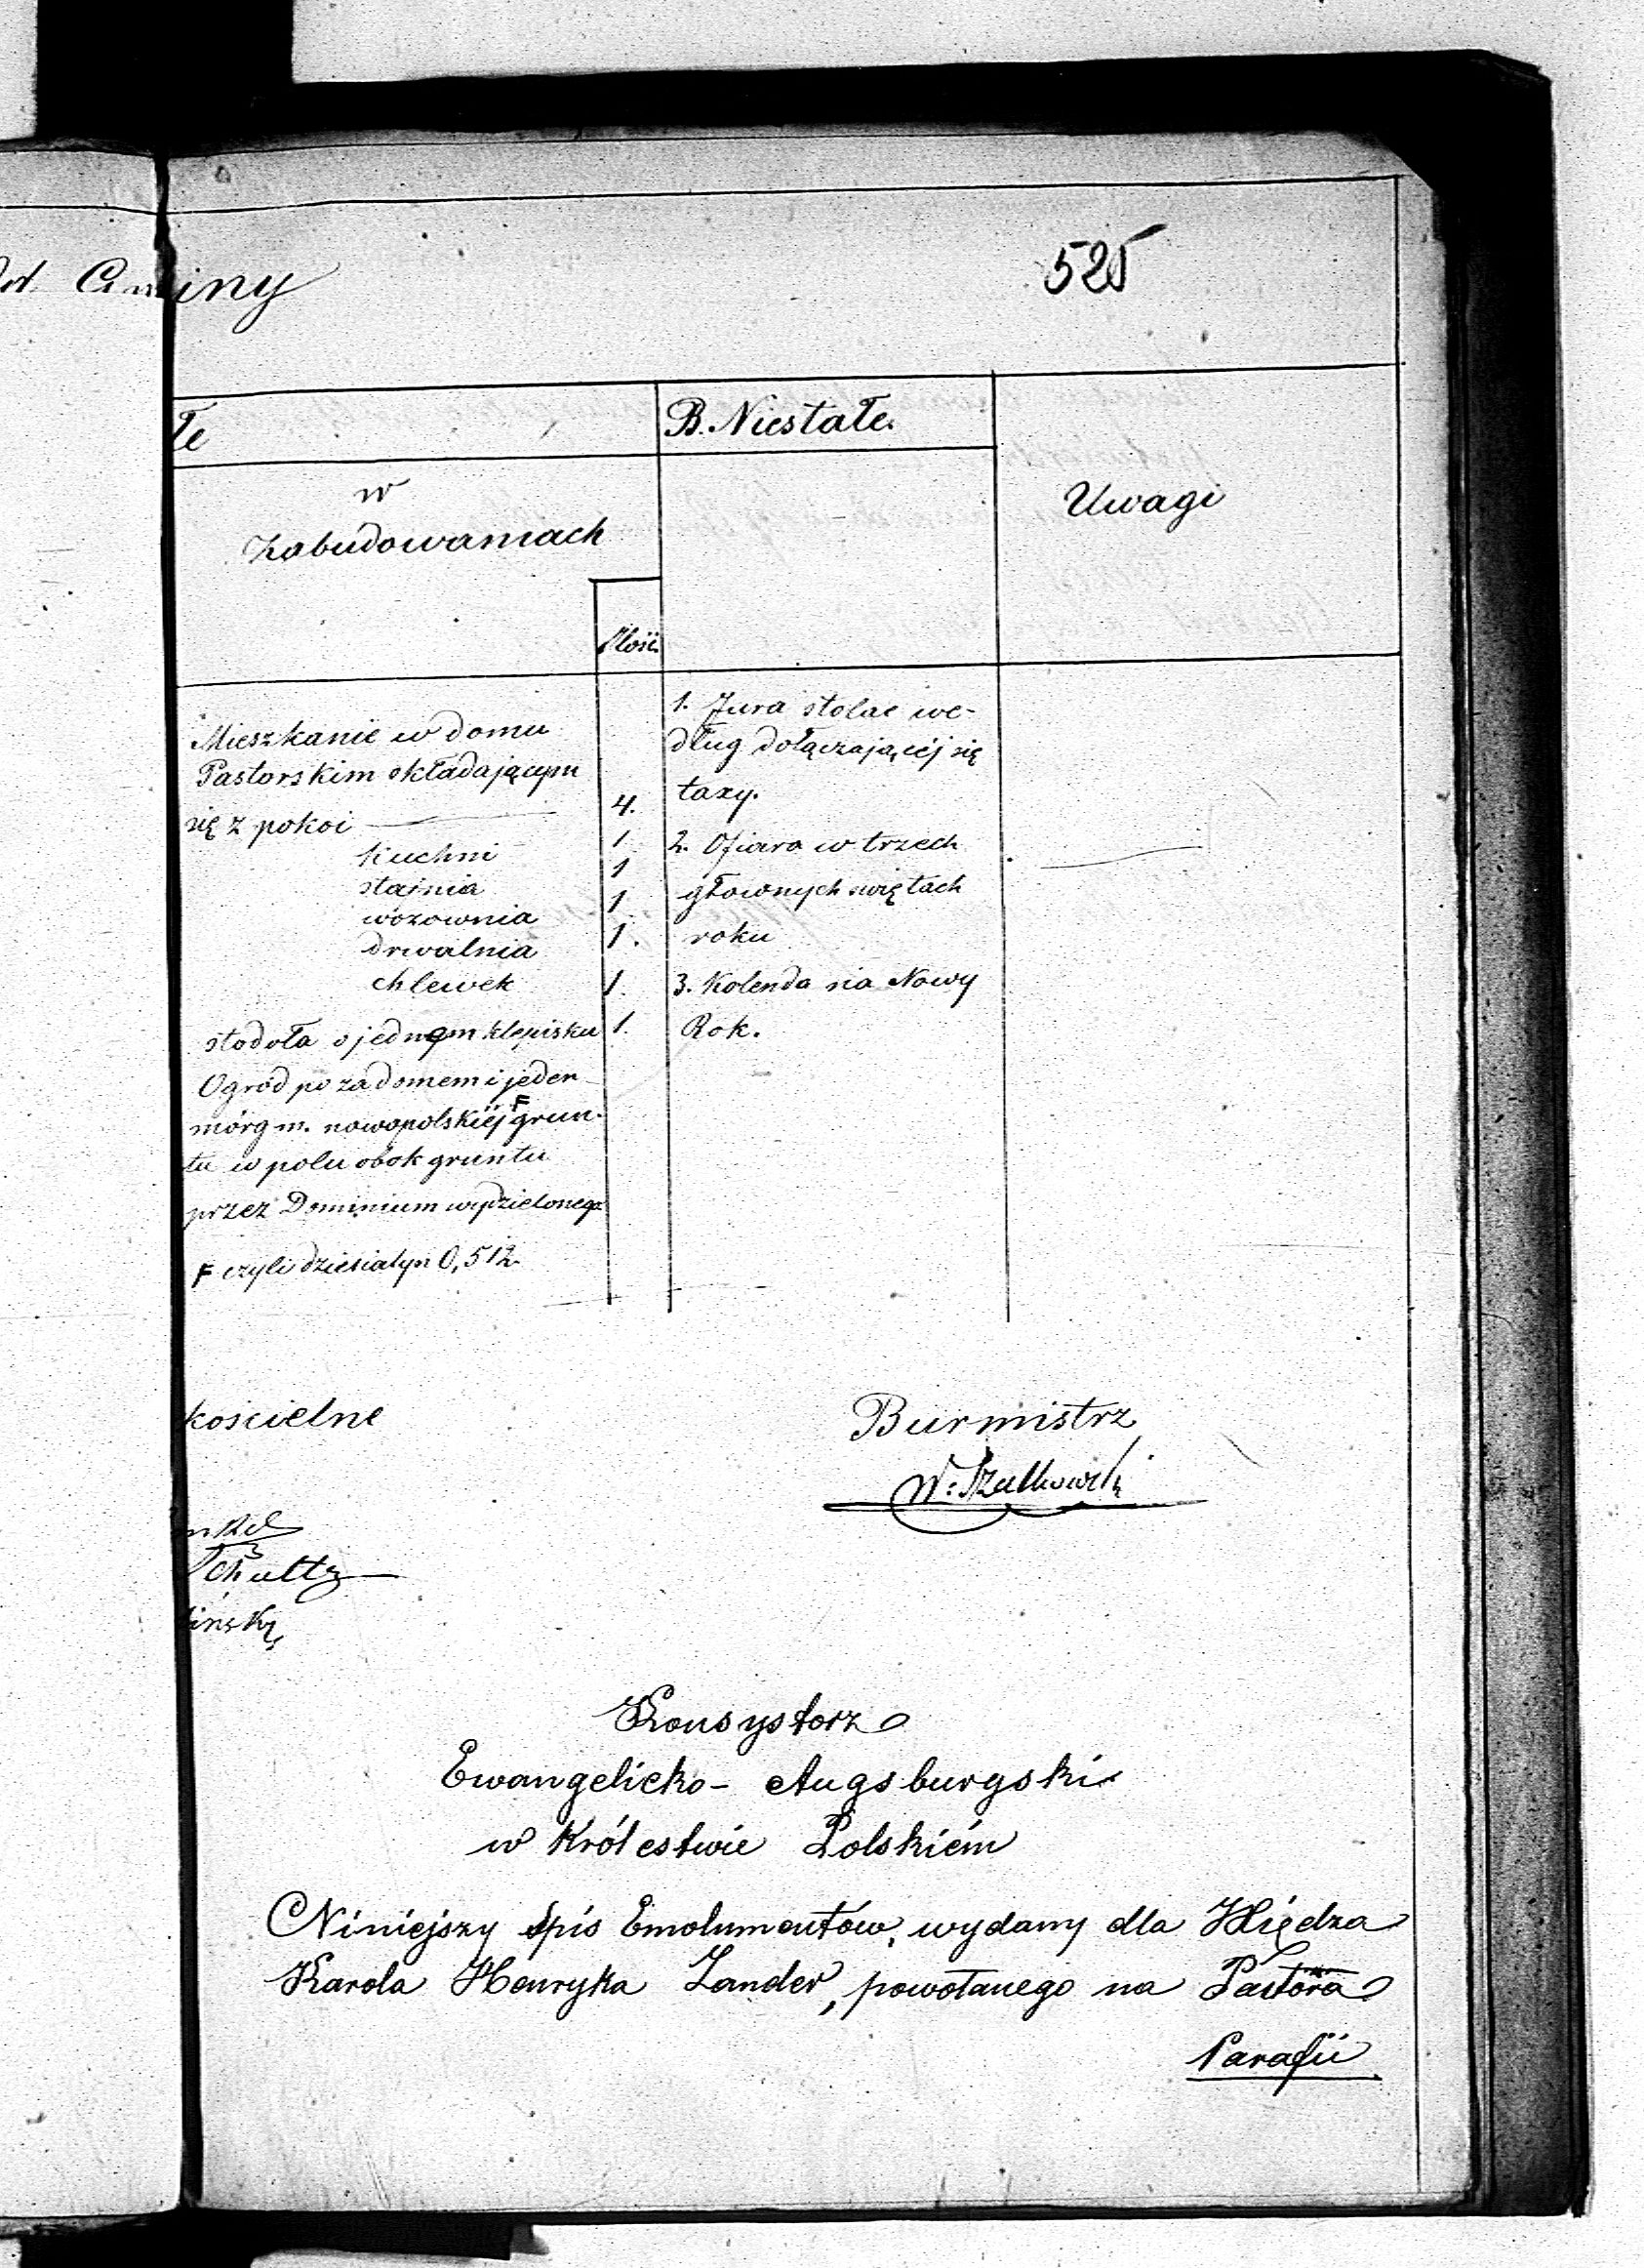 Gminy
525
łe
B. Niestałe.
Uwagi
w
Zabudowaniach
Ilość.
Mieszkanie w domu
Pastorskim składającym
się z pokoi 4.
kuchni 1
stajnia 1
wozownia 1
drwalnia 1.
chlewek 1.
stodoła o jednem klepisku 1.
Ogród po za domem i jeden
mórg m. nowopolskiéj F grun-
tu w polu obok gruntu
przez Dominium wydzielonego
F czyli dziesiatyn 0,512.
1. Jura stolae we-
dług dołączającéj się
taxy.
2. Ofiara w trzech
głownych swiętach
roku
3. Kolenda na Nowy
Rok.
kościelne
Burmistrz
W. Szulkowski
nkel
Schultz
ińsky
Konsystorz
Ewangelicko- Augsburgski
w Królestwie Polskiém
Niniejszy Spis Emolumentów, wydany dla Xiędza
Karola Henryka Zander, powołanego na Pastora
Parafii